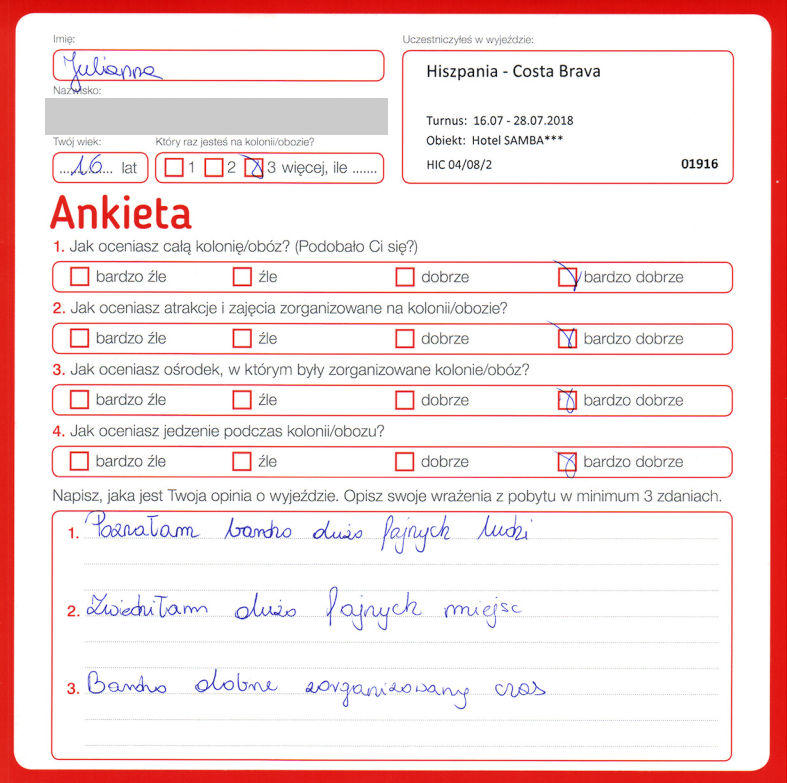 Imię:
Julianna
Nazwisko:
Twój wiek:
...16... lat
Który raz jesteś na kolonii/obozie?
1 2 3 więcej, ile .......
Uczestniczyłeś w wyjeździe:
Hiszpania - Costa Brava
Turnus: 16.07 - 28.07.2018
Obiekt: Hotel SAMBA***
HIC 04/08/2 01916
Ankieta
1. Jak oceniasz całą kolonię/obóz? (Podobało Ci się?)
bardzo źle źle dobrze bardzo dobrze
2. Jak oceniasz atrakcje i zajęcia zorganizowane na kolonii/obozie?
bardzo źle źle dobrze bardzo dobrze
3. Jak oceniasz ośrodek, w którym były zorganizowane kolonie/obóz?
bardzo źle źle dobrze bardzo dobrze
4. Jak oceniasz jedzenie podczas kolonii/obozu?
bardzo źle źle dobrze bardzo dobrze
Napisz, jaka jest Twoja opinia o wyjeździe. Opisz swoje wrażenia z pobytu w minimum 3 zdaniach.
1. Poznałam bardzo dużo fajnych ludzi
2. Zwiedziłam dużo fajnych miejsc
3. Bardzo dobrze zorganizowany czas